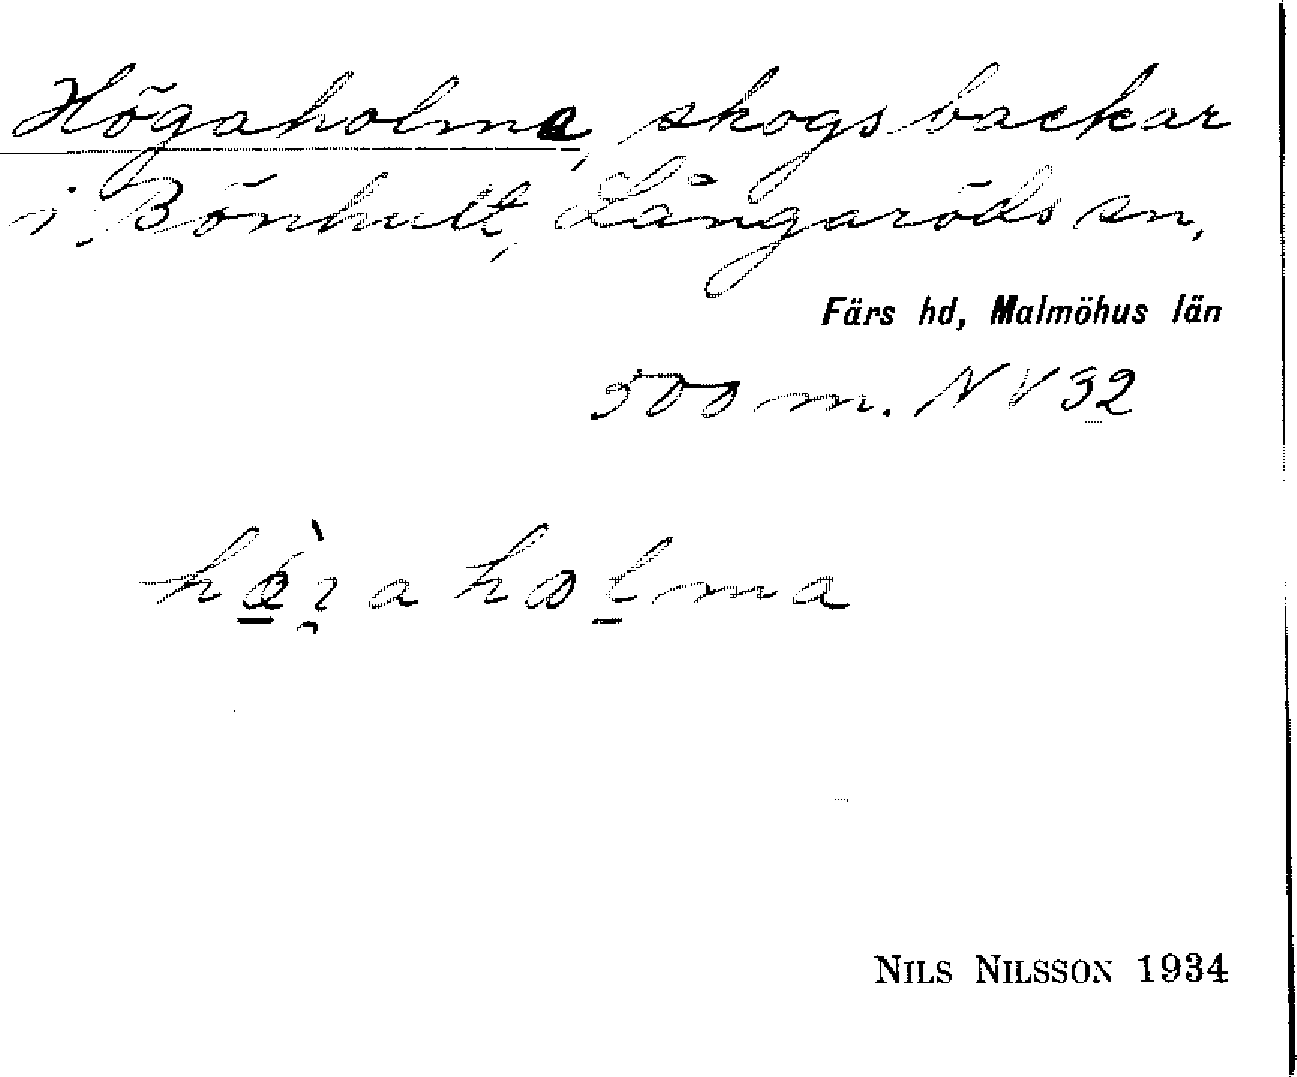 Högaholma, skogsbackar
i Bönhult, Långaröds sn,
Färs hd, Malmöhus län
500 m. NV 32
NILS NILSSON 1934